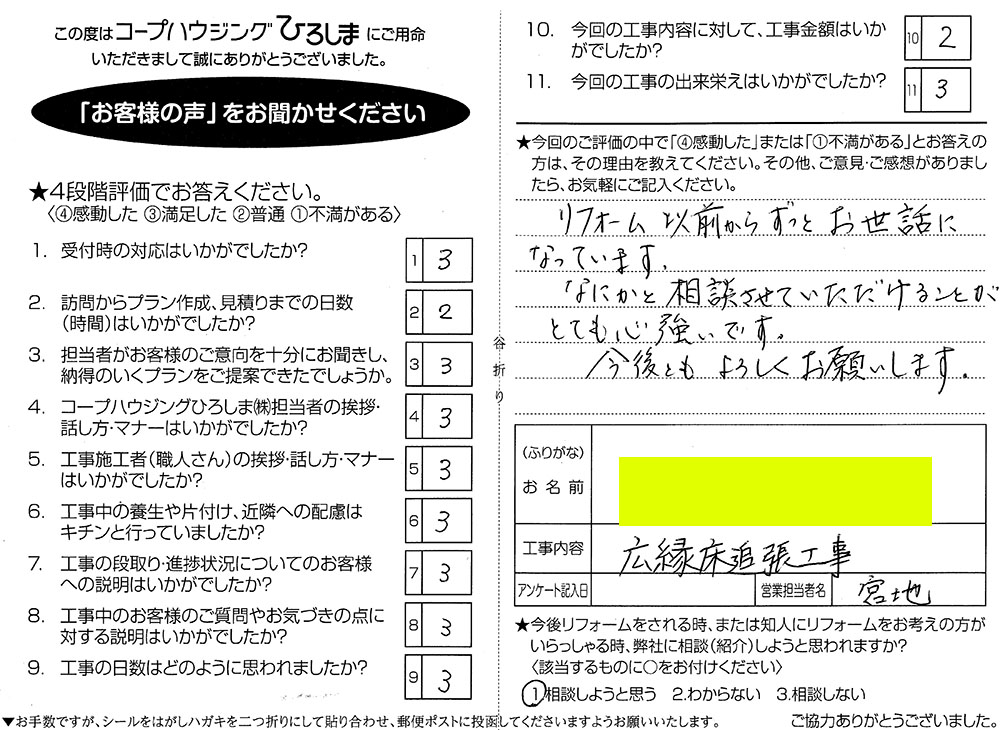 この度はコープハウジングひろしまにご用命
いただきまして誠にありがとうございました。
「お客様の声」をお聞かせください
★4段階評価でお答えください。
〈④感動した ③満足した ②普通 ①不満がある〉
1. 受付時の対応はいかがでしたか?
1 3
2. 訪問からプラン作成、見積りまでの日数
(時間)はいかがでしたか?
2 2
3. 担当者がお客様のご意向を十分にお聞きし、
納得のいくプランをご提案できたでしょうか。
3 3
4. コープハウジングひろしま㈱担当者の挨拶・
話し方・マナーはいかがでしたか?
4 3
5. 工事施工者(職人さん)の挨拶・話し方・マナー
はいかがでしたか?
5 3
6. 工事中の養生や片付け、近隣への配慮は
キチンと行っていましたか?
6 3
7. 工事の段取り・進捗状況についてのお客様
への説明はいかがでしたか?
7 3
8. 工事中のお客様のご質問やお気づきの点に
対する説明はいかがでしたか?
8 3
9. 工事の日数はどのように思われましたか?
9 3
谷折り
10. 今回の工事内容に対して、工事金額はいか
がでしたか?
10 2
11. 今回の工事の出来栄えはいかがでしたか?
11 3
★今回のご評価の中で「④感動した」または「①不満がある」とお答えの
方は、その理由を教えてください。その他、ご意見・ご感想がありまし
たら、お気軽にご記入ください。
リフォーム以前からずっとお世話に
なっています。
なにかと相談させていただけることが
とても心強いです。
今後ともよろしくお願いします。
(ふりがな)
お名前
工事内容 広縁床追張工事
アンケート記入日 営業担当者名 宮地
★今後リフォームをされる時、または知人にリフォームをお考えの方が
いらっしゃる時、弊社に相談(紹介)しようと思われますか?
〈該当するものに○をお付けください〉
1.相談しようと思う 2.わからない 3.相談しない
▼お手数ですが、シールをはがしハガキを二つ折りにして貼り合わせ、郵便ポストに投函してくださいますようお願いいたします。
ご協力ありがとうございました。